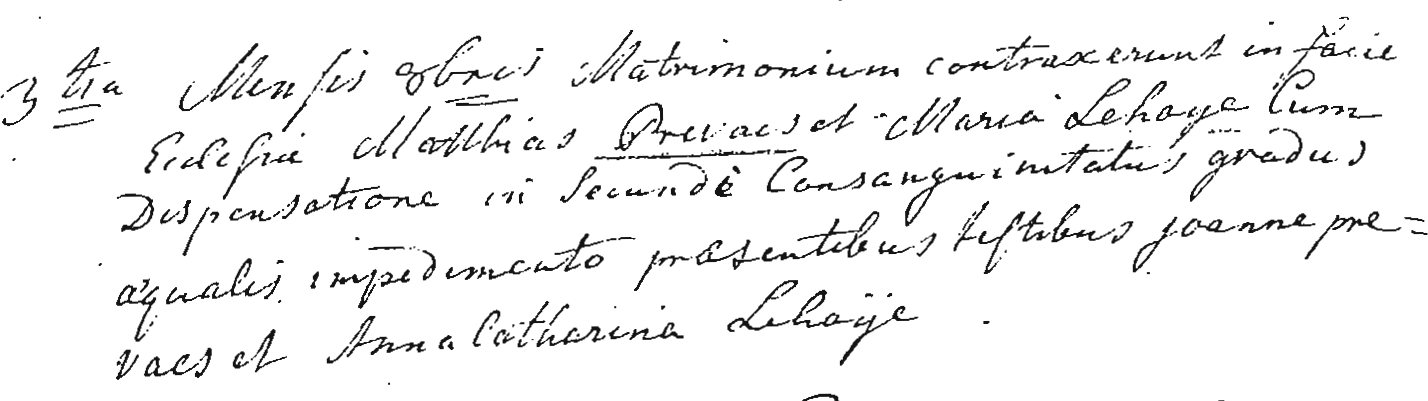 3 tia Mensis 8bris Matrimonium contraxerunt in facie
Eclesiæ Matthias Prevaes et Maria Lehaye Cum
Dispensatione in Secundè Consanguinitatus gradus
æqualis impedimento præsentibus testibus joanne pre=
vaes et Anna Catharina Lehaÿe .